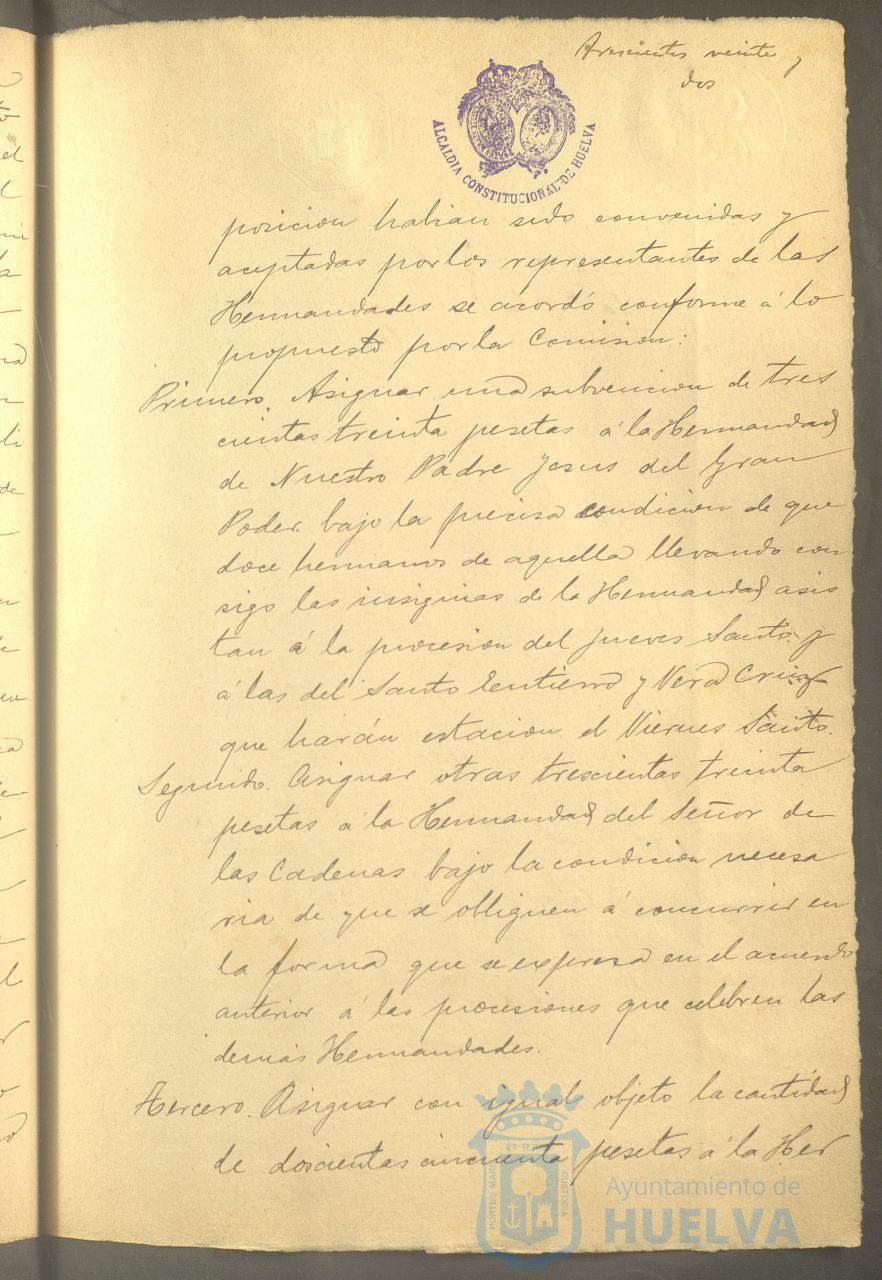 trescientos veinte y
dos
ALCALDIA CONSTITUCIONAL DE HUELVA
posicion habian sido convenidas y
aceptadas por los representantes de las
Hermandades se acordó conforme á lo
propuesto por la Comision:
Primero. Asignar una subvencion de tres
cientas treinta pesetas á la Hermandad
de Nuestro Padre Jesus del Gran
Poder bajo la precisa condicion de que
doce hermanos de aquella llevando con
sigo las insignias de la Hermandad asis
tan á la procesion del jueves Santo y
á las del Santo Entierro y Vera Cruz
que harán estacion el Viernes Santo.
Segundo. Asignar otras trescientas treinta
pesetas á la Hermandad del Señor de
las Cadenas bajo la condicion necesa
ria de que se obliguen á concurrir en
la forma que se expresa en el acuerdo
anterior á las procesiones que celebren las
demás Hermandades.
Tercero. Asignar con igual objeto la cantidad
de doscientas cincuenta pesetas á la Her
PORTUS MARIS ET TERRAE CUSTODIA
Ayuntamiento de
HUELVA